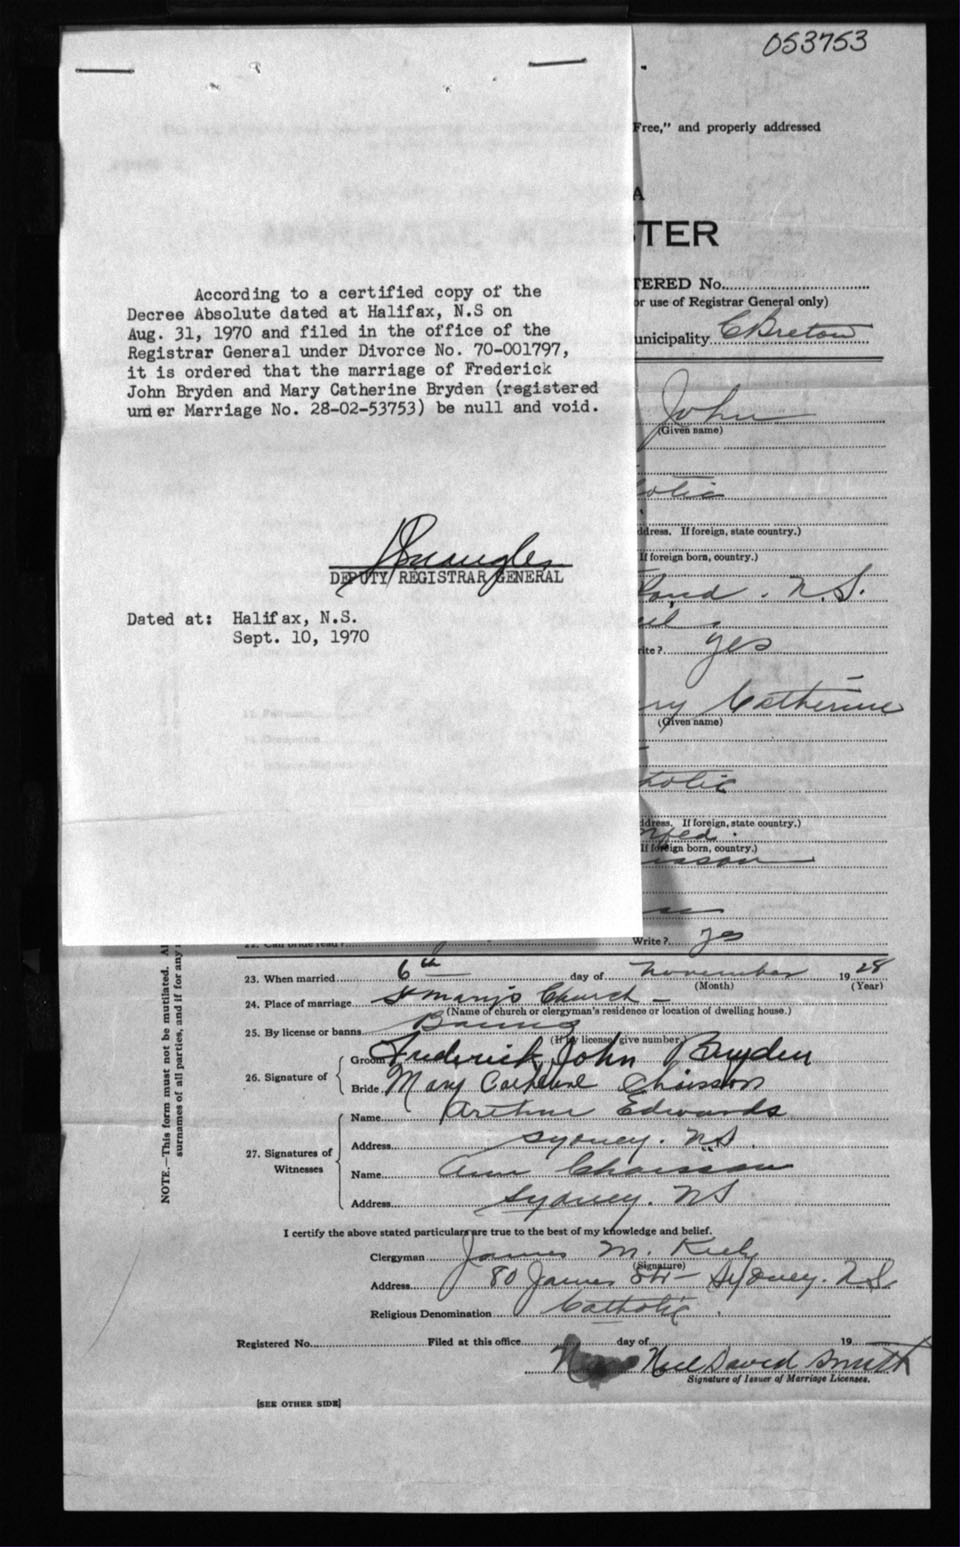 053753
Free," and properly addressed
A
TER
TERED No.
or use of Registrar General only)
unicipality. C Breton
According to a certified copy of the
Decree Absolute dated at Halifax, N.S on
Aug. 31, 1970 and filed in the office of the
Registrar General under Divorce No. 70-001797,
it is ordered that the marriage of Frederick
John Bryden and Mary Catherine Bryden (registered
under Marriage No. 28-02-53753) be null and void.
DEPUTY REGISTRAR GENERAL
Dated at: Halifax, N.S.
Sept. 10, 1970
John
(Given name)
olic
ddress. If foreign, state country.)
If foreign born, country.)
land. N.S.
rite? yes
ry Catherine
(Given name)
holic
ddress. If foreign, state country.)
If foreign born, country.)
isson
22. Can bride read?
Write? yes
NOTE.—This form must not be mutilated. Al
surnames of all parties, and if for any
23. When married 6th day of November 1928
(Month) (Year)
24. Place of marriage St Mary's Church
(Name of church or clergyman's residence or location of dwelling house.)
25. By license or banns Banns
(If by license, give number)
26. Signature of
Groom Frederick John Bryden
Bride Mary Catherine Chiasson
27. Signatures of Witnesses
Name Arthur Edwards
Address Sydney. N.S.
Name Ann Chaisson
Address Sydney. NS
I certify the above stated particulars are true to the best of my knowledge and belief.
Clergyman James M. Kiely
(Signature)
Address 80 James Str - Sydney. N.S.
Religious Denomination Catholic.
Registered No. Filed at this office day of 19
Neil David Smith
Signature of Issuer of Marriage Licenses.
[SEE OTHER SIDE]